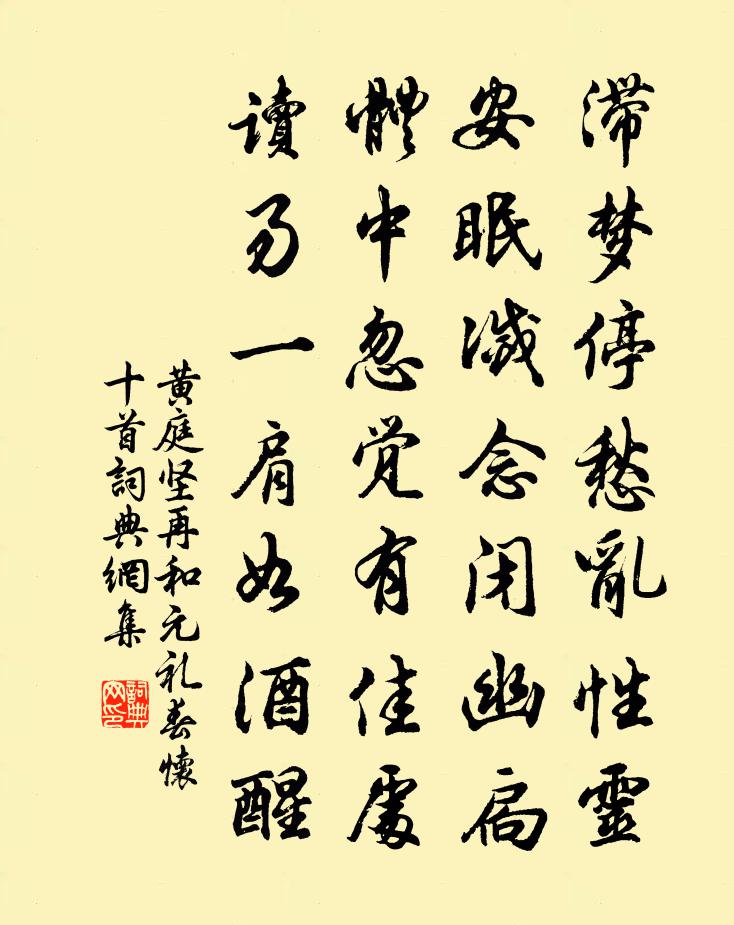 滞梦停愁亂性靈
安眠滅念闭幽扃
體中忽觉有佳處
讀易一肩如酒醒
黄庭坚再和元礼春懷
十首詞典網集
詞典网印